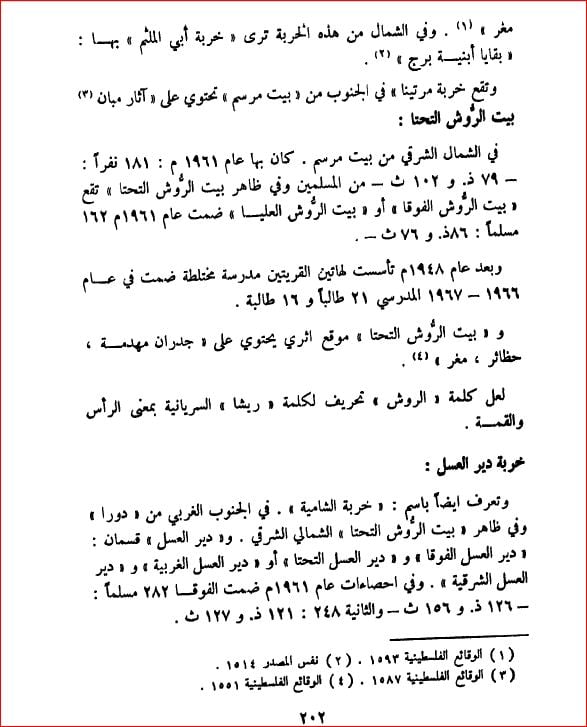 مغر » (١) . وفي الشمال من هذه الخربة ترى « خربة أبي الملثم » بهـا :
« بقايا أبنيـة برج » (٢) .
وتقع خربة مرتينا » في الجنوب من « بيت مرسم » تحتوي على « آثار مبان (٣)
بيت الرُّوش التحتا :
في الشمال الشرقي من بيت مرسم . كان بها عام ١٩٦١ م : ١٨١ نفراً :
– ٧٩ ذ. و ١٠٢ ث – من المسلمين وفي ظاهر بيت الرُّوش التحتا » تقع
« بيت الرُّوش الفوقا » أو « بيت الرُّوش العليـا » ضمت عام ١٩٦١م ١٦٢
مسلماً : ٨٦ذ. و ٧٦ ث – .
وبعد عام ١٩٤٨م تأسست لهاتين القريتين مدرسة مختلطة ضمت في عـام
١٩٦٦ – ١٩٦٧ المدرسي ٢١ طالباً و ١٦ طالبة .
و « بيت الرُّوش التحتا » موقع اثري يحتوي على « جدران مهدمـة ،
حظائر ، مغر » (٤) .
لعل كلمة « الروش » تحريف لكلمة « ريشا » السريانية بمعنى الرأس
والقمـة .
خربة دير العسل :
وتعرف ايضاً باسم : « خربة الشامية » . في الجنوب الغربي من « دورا »
وفي ظاهر « بيت الرُّوش التحتا » الشمالي الشرقي . و« دير العسل » قسمان :
« دير العسل الفوقا » و « دير العسل التحتا » أو « دير العسل الغربية » و « دير
العسل الشرقية » . وفي احصاءات عام ١٩٦١م ضمت الفوقـا ٢٨٢ مسلماً :
– ١٢٦ ذ. و ١٥٦ ث – والثانية ٢٤٨ : ١٢١ ذ. و ١٢٧ ث .
(١) الوقائع الفلسطينية ١٥٩٣ . (٢) نفس المصدر ١٥١٤ .
(٣) الوقائع الفلسطينية ١٥٨٧ . (٤) الوقائع الفلسطينية ١٥٥١ .
٢٠٢